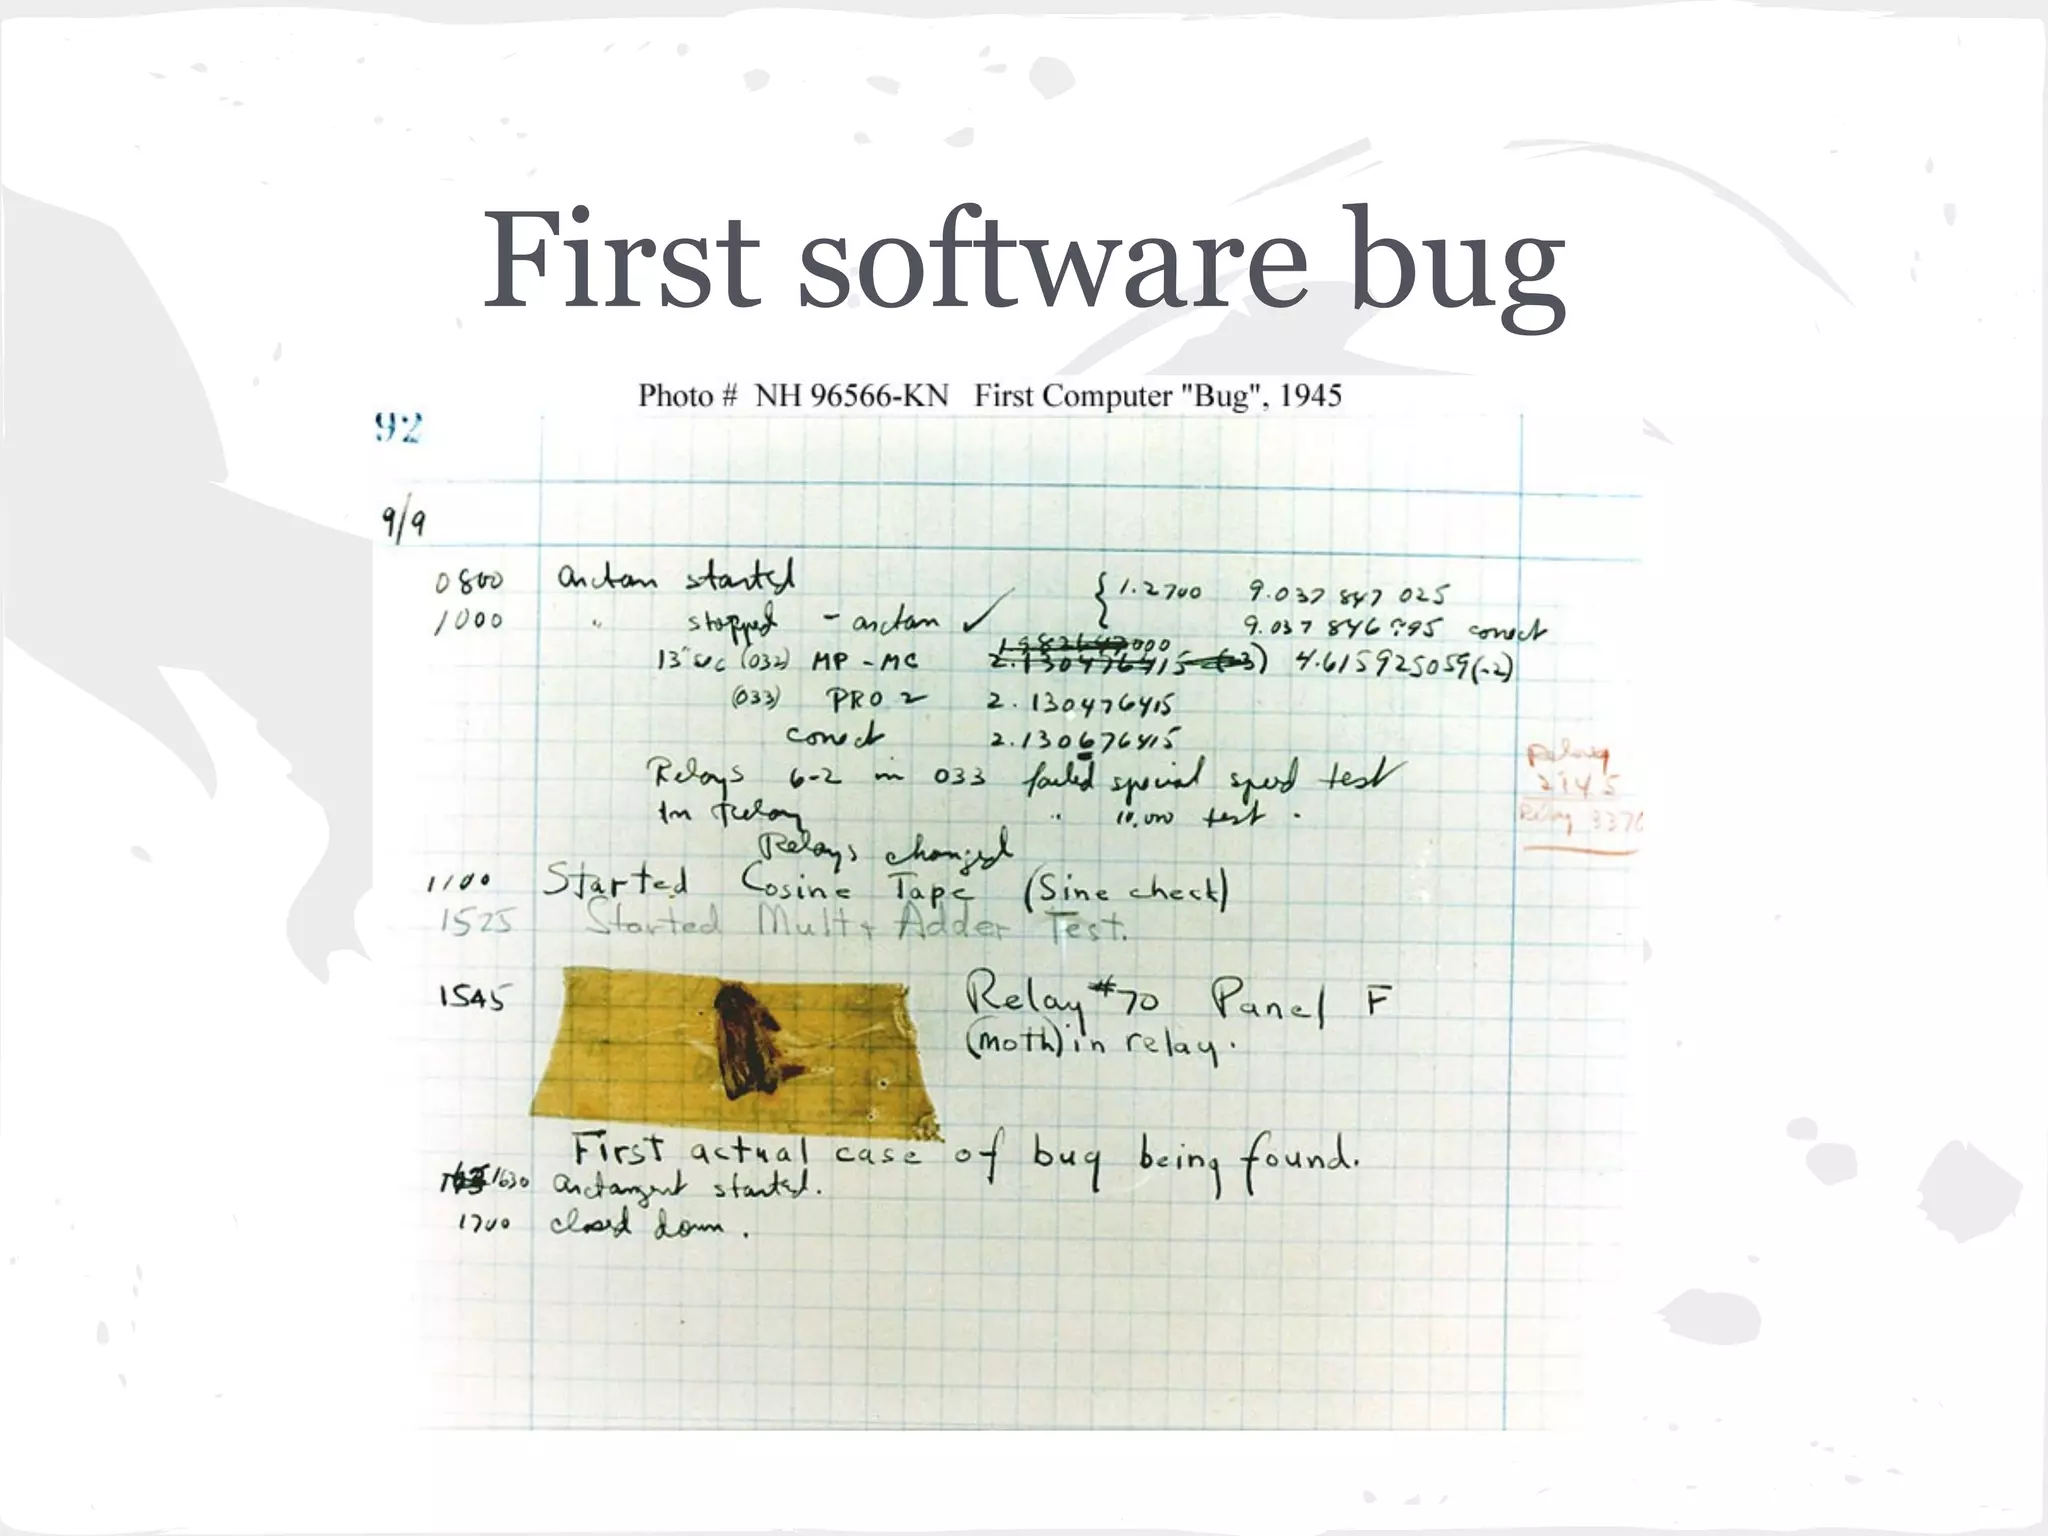 First software bug
Photo # NH 96566-KN First Computer "Bug", 1945
92
9/9
0800 arctan started { 1.2700 9.037 847 025
1000 " stopped - arctan ✓ 9.037 846 995 correct
13" sec (032) MP - MC 2.130476415 (-3) 4.615925059(-2)
(033) PRO 2 2.130476415
correct 2.130676415
Relays 6-2 in 033 failed special speed test
In Relay " 10,000 test .
Relay
2145
Relay 3370
Relays changed
1100 Started Cosine Tape (Sine check)
1525 Started Mult + Adder Test.
1545 Relay #70 Panel F
(moth) in relay.
First actual case of bug being found.
1630 arctangent started.
1700 closed down.